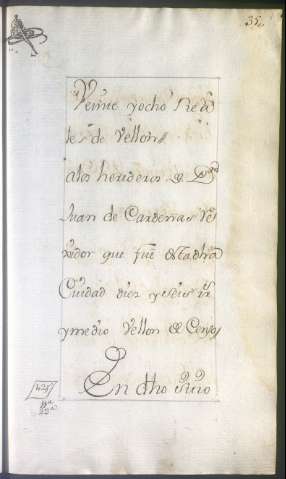 35
Veinte y ocho Rea
les de Vellon
a los herederos de Dn
Juan de Cardenas Re
xidor que fué de la dha
Ciudad diez y seis rs
y medio Vellon de Censos
En dho Sitio
425